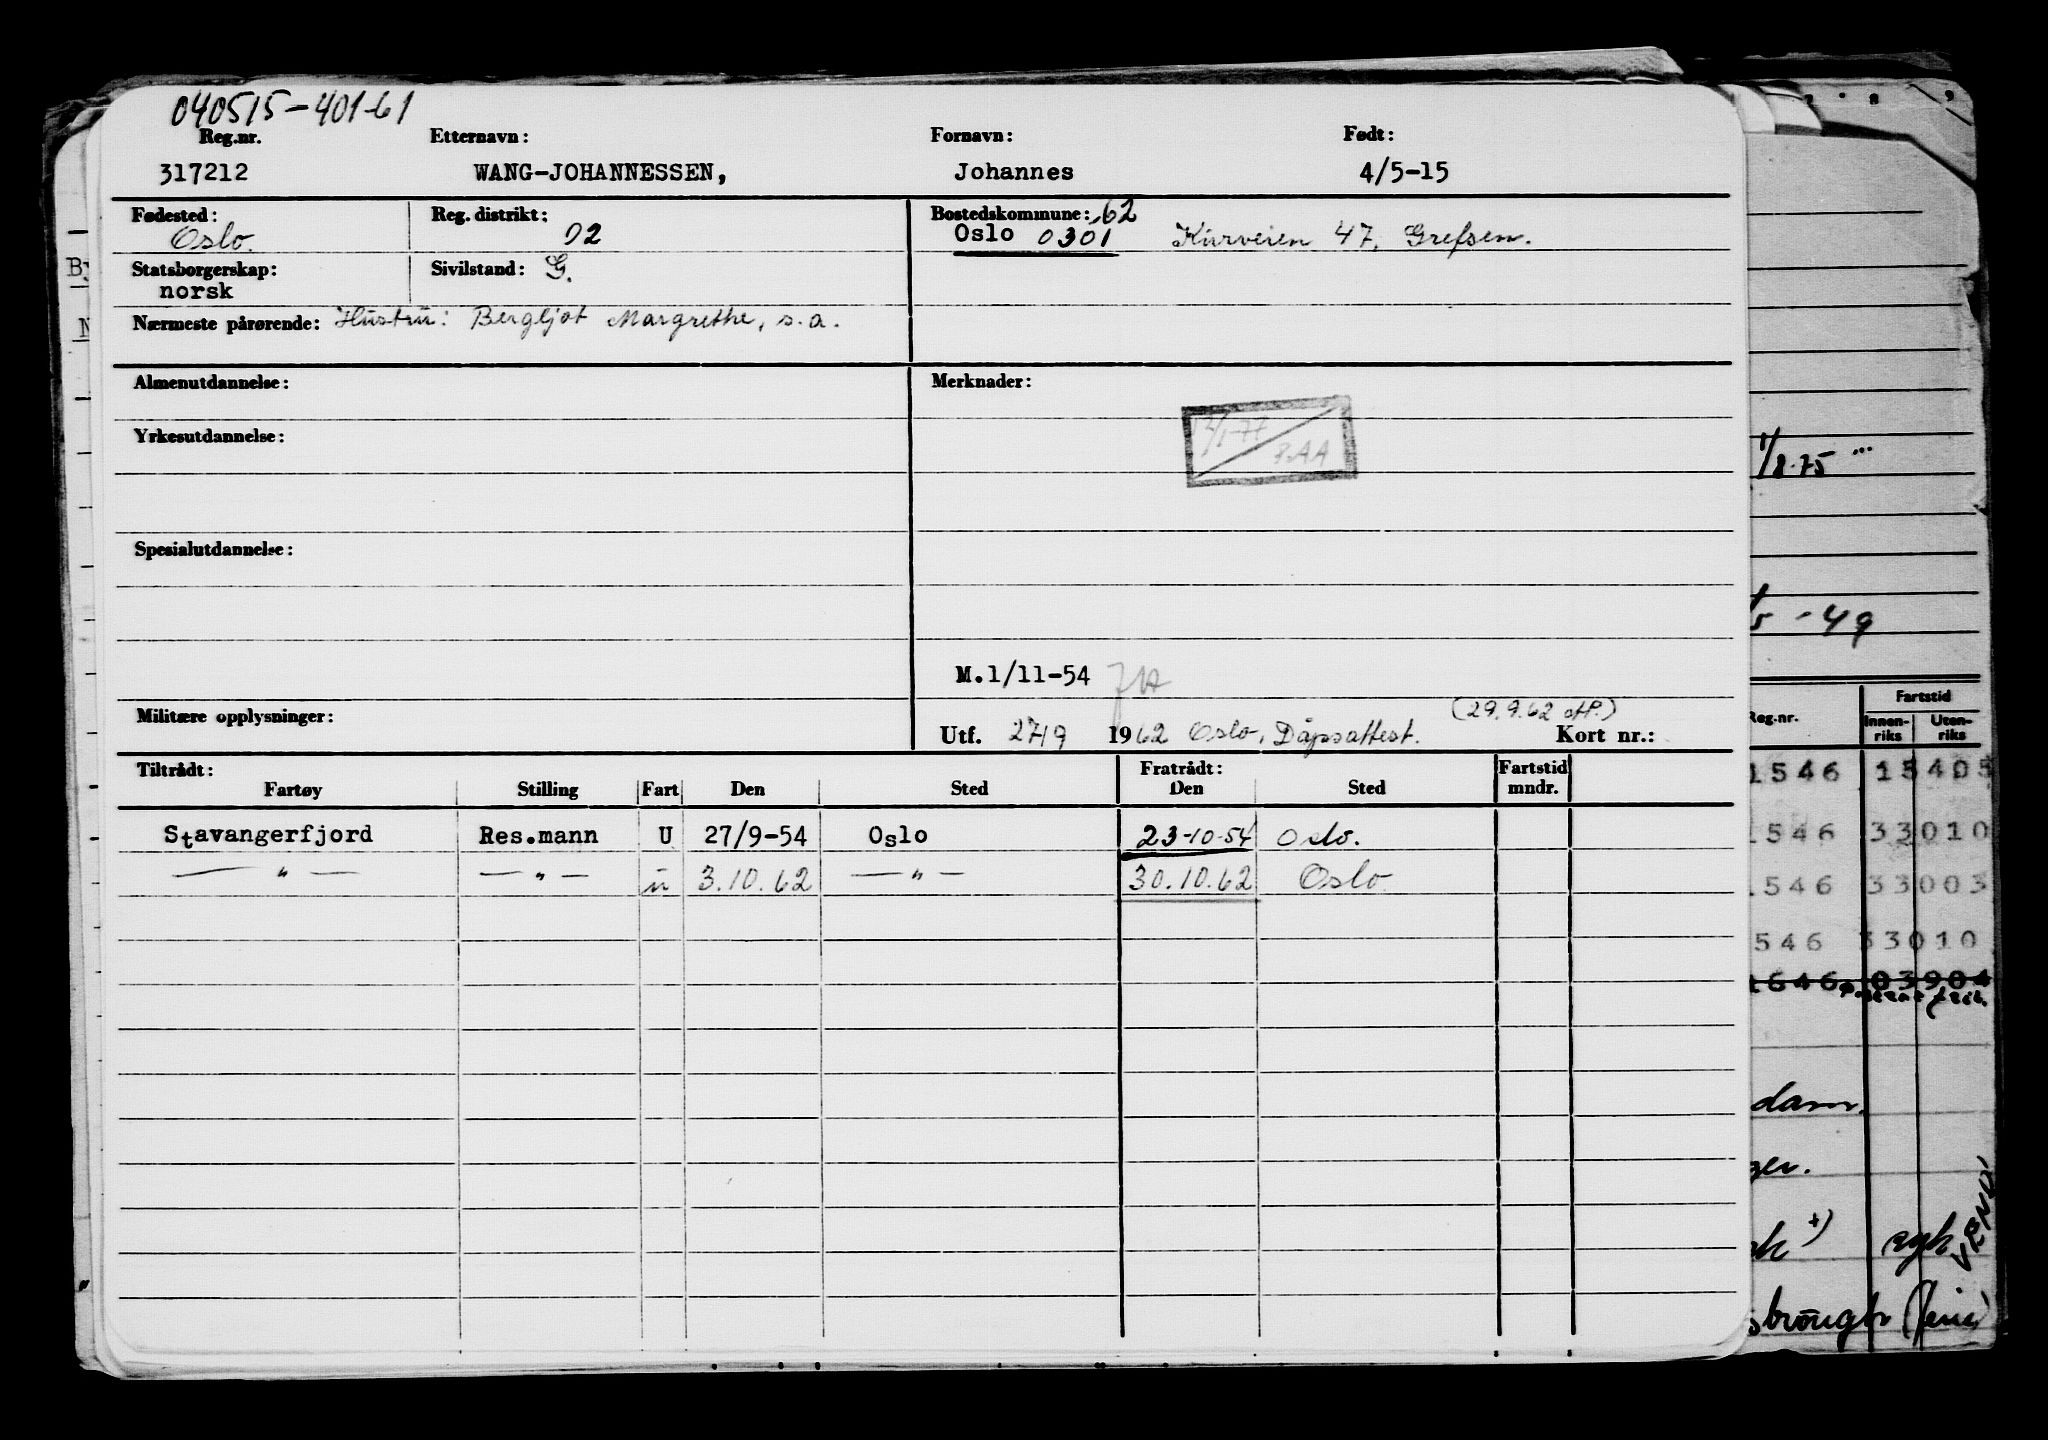 040515-401-61
Reg.nr. Etternavn: Fornavn: Født:
317212 WANG-JOHANNESSEN, Johannes 4/5-15
Fødested: Reg. distrikt: Bostedskommune: 62
Oslo. 02 Oslo 0301 Kurveien 47, Grefsen.
Statsborgerskap: Sivilstand: G.
norsk
Nærmeste pårørende: Hustru: Bergljot Margrethe, s.a.
Almenutdannelse: Merknader:
Yrkesutdannelse:
Spesialutdannelse:
M.1/11-54
Militære opplysninger: (29.9.62
Utf. 27/9 1962 Oslo, Dåpsattest. Kort nr.:
Tiltrådt: Fratrådt: Fartstid
Fartøy Stilling Fart Den Sted Den Sted mndr.
Stavangerfjord Res.mann U 27/9-54 Oslo 23-10-54 Oslo.
— " — — " — u 3.10.62 — " — 30.10.62 Oslo
1/8-75
-49
Fartstid
Reg.nr. Innen-riks Uten-riks
1546 15405
1546 33010
1546 33003
546 33010
1646 03904
dam.
ger.
syk
VEND